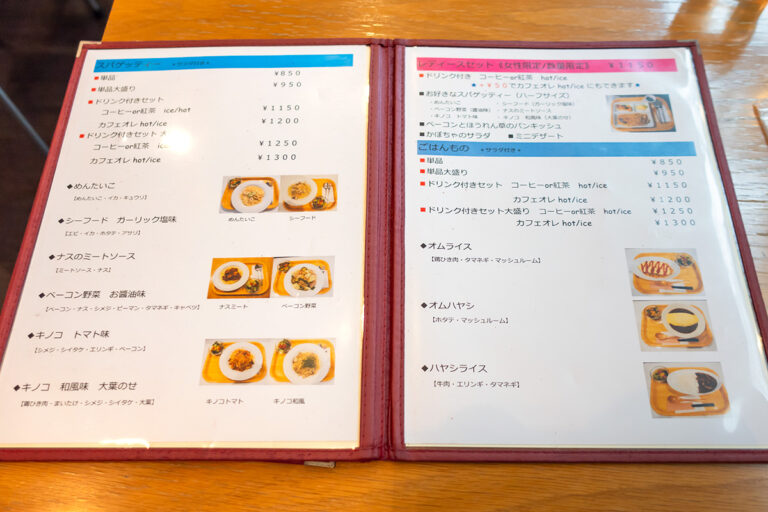 スパゲッティー ＊サラダ付き＊
■単品 ￥850
■単品大盛り ￥950
■ドリンク付きセット
コーヒーor紅茶 ice/hot ￥1150
カフェオレ hot/ice ￥1200
■ドリンク付きセット 大
コーヒーor紅茶 ice ￥1250
カフェオレ hot/ice ￥1300
◆めんたいこ
【めんたいこ・イカ・キュウリ】
めんたいこ シーフード
◆シーフード ガーリック塩味
【エビ・イカ・ホタテ・アサリ】
◆ナスのミートソース
【ミートソース・ナス】
◆ベーコン野菜 お醤油味
【ベーコン・ナス・シメジ・ピーマン・タマネギ・キャベツ】
ナスミート ベーコン野菜
◆キノコ トマト味
【シメジ・シイタケ・エリンギ・ベーコン】
◆キノコ 和風味 大葉のせ
【鶏ひき肉・まいたけ・シメジ・シイタケ・大葉】
キノコトマト キノコ和風
レディースセット《女性限定/数量限定》 ￥1150
■ドリンク付き コーヒーor紅茶 hot/ice
★＋￥50でカフェオレ hot/ice にもできます★
■お好きなスパゲッティー（ハーフサイズ）
・めんたいこ ・シーフード（ガーリック塩味）
・ベーコン野菜（醤油味） ・ナスのミートソース
・キノコ トマト味 ・キノコ 和風味（大葉のせ）
■ベーコンとほうれん草のパンキッシュ
■かぼちゃのサラダ ■ミニデザート
ごはんもの ＊サラダ付き＊
■単品 ￥850
■単品大盛り ￥950
■ドリンク付きセット コーヒーor紅茶 hot/ice ￥1150
カフェオレ hot/ice ￥1200
■ドリンク付きセット大盛り コーヒーor紅茶 hot/ice ￥1250
カフェオレ hot/ice ￥1300
◆オムライス
【鶏ひき肉・タマネギ・マッシュルーム】
◆オムハヤシ
【ホタテ・マッシュルーム】
◆ハヤシライス
【牛肉・エリンギ・タマネギ】